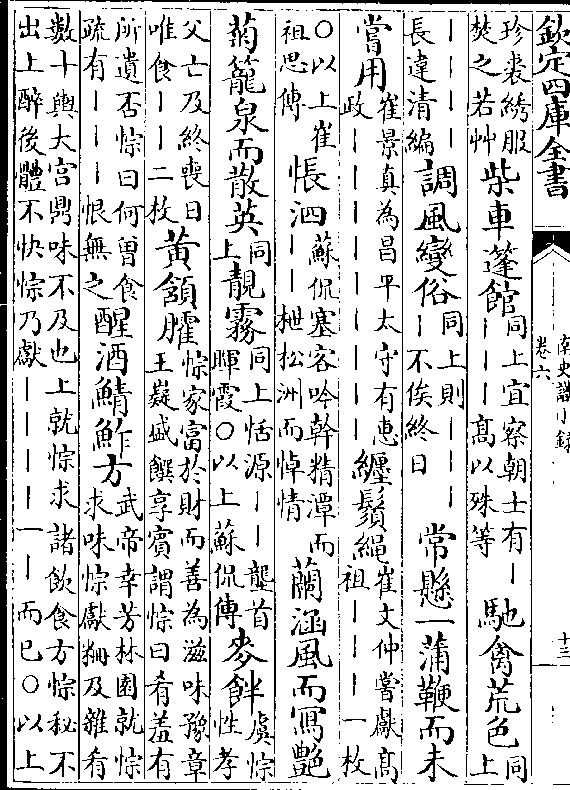 欽定四庫全書
南史識小録
卷六
十三
珍裘綉服
焚之若艸
柴車蓬館
同上宜察朝士有｜
｜｜｜高以殊等
馳禽荒色
同
上
｜｜｜｜
長違清編
調風變俗
同上則｜｜
｜｜不俟終日
常懸一蒲鞭而未
嘗用
崔景真為昌平太守有惠
政｜｜｜｜｜｜｜｜
纏鬚繩
崔文仲嘗獻髙
祖｜｜｜一枚
○以上崔
祖思傳
悵泗
蘇侃塞客吟幹精潭而
｜｜枻松洲而悼情
蘭涵風而寫艷
菊籠泉而散英
同
上
靚霧
同上恬源｜｜龔首
暉霞○以上蘇侃傳
麥餅
虞悰
性孝
父亡及終喪日
唯食｜｜二枚
黃頷臛
悰家富於財而善為滋味豫章
王嶷盛饌享賓謂悰曰肴羞有
所遺否悰曰何曽食
疏有｜｜｜恨無之
醒酒鯖鮓方
武帝幸芳林園就悰
求味悰獻粣及雜肴
數十輿大宫鼎味不及也上就悰求諸飲食方悰秘不
出上醉後體不快悰乃獻｜｜｜｜一｜而已○以上